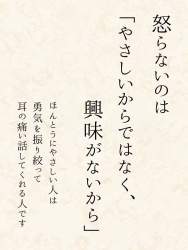 怒らないのは
「やさしいからではなく、
興味がないから」
ほんとうにやさしい人は
勇気を振り絞って
耳の痛い話してくれる人です